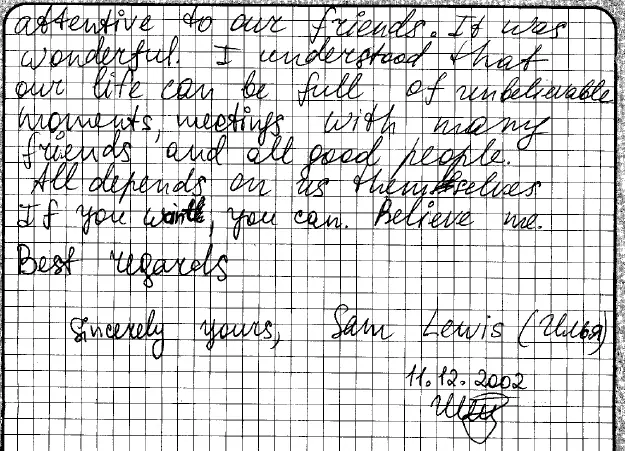 attentive to our friends. It was
wonderful. I understood that
our life can be full of unbelievable
moments, meetings with many
friends and all good people.
All depends on us themselves
If you want, you can. Believe me.
Best regards
Sincerely yours, Sam Lewis (Илья)
11.12.2002